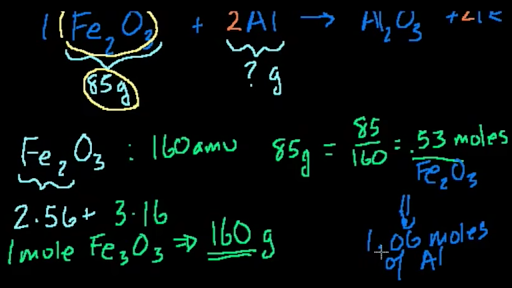 1 Fe₂O₃ + 2Al → Al₂O₃ + 2Fe
85g
? g
Fe₂O₃ : 160 amu
85g = 85/160 = .53 moles Fe₂O₃
⇓
2·56 + 3·16
1 mole Fe₃O₃ ⇒ 160 g
1.06 moles
of Al